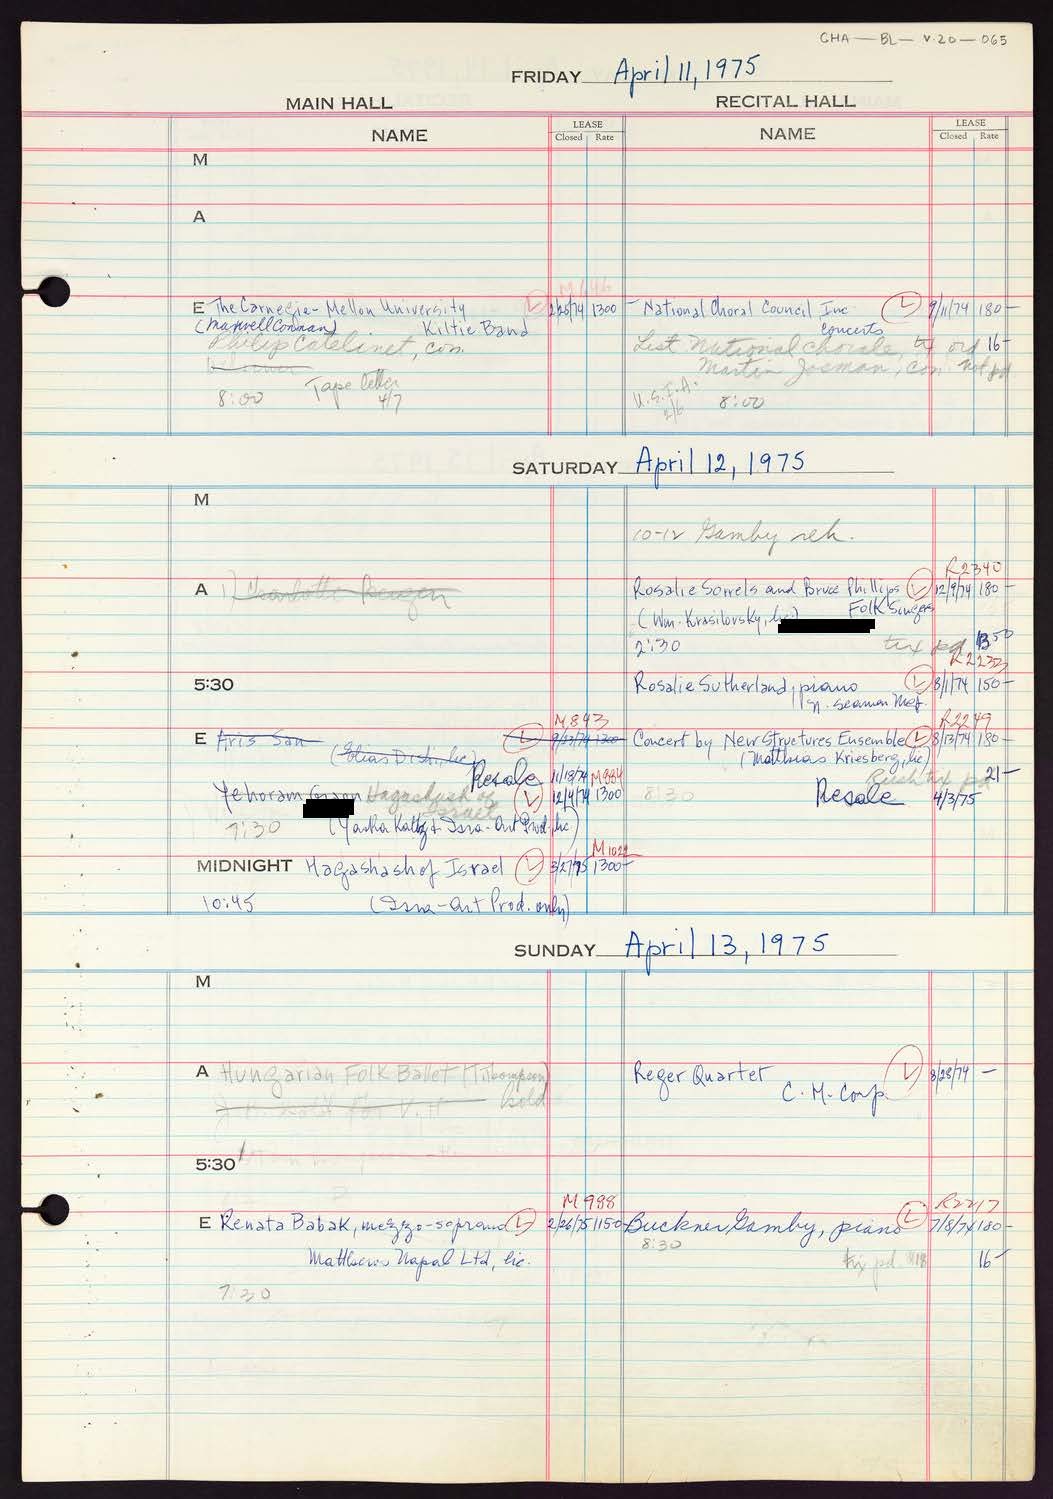 CHA — BL — V.20 — 065
FRIDAY April 11, 1975
MAIN HALL
RECITAL HALL
NAME
LEASE
Closed Rate
NAME
LEASE
Closed Rate
M
A
M 646
E The Carnegie-Mellon University 2/25/74 1300
Kiltie Band
Philip Catelinet, con.
Tape letter
8:00 4/7
National Choral Council Inc L 9/11/74 180 —
Concerts
List National Chorale, tx ord 16 —
Martin Josman, con not pd
U.S.I.A.
2/6 8:00
SATURDAY April 12, 1975
M
10-12 Gamby reh.
A 1) Charlotte Bergen
R2340
Rosalie Sorrels and Bruce Phillips L 12/9/74 180 —
(Wm. Krasilovsky, Inc) Folk Singers
2:30 tix pd 13 50
R2232
5:30
Rosalie Sutherland, piano L 8/1/74 150 —
N. Seaman Mgt.
M 843
E Aris San L 9/23/74 1300
Resale 11/18/74 M 984
Yehoram Gaon Hagashash of Israel L 12/4/74 1300
7:30
R2249
Concert by New Structures Ensemble L 8/13/74 180 —
(Matthias Kriesberg, Inc)
Rush tix pd 21 —
8:30 Resale 4/3/75
MIDNIGHT Hagashash of Israel L 3/27/75 1300 —
M 1022
10:45 (Isra-Art Prod. only)
SUNDAY April 13, 1975
M
A Hungarian Folk Ballet (Thompson)
hold
Reger Quartet L 8/28/74 —
C. M. Corp.
5:30
M 998
E Renata Babak, mezzo-soprano L 2/26/75 1150
Matthew Napal Ltd, Inc.
7:30
R2217
Buckner Gamby, piano L 7/8/74 180 —
8:30
tix pd. 16 —